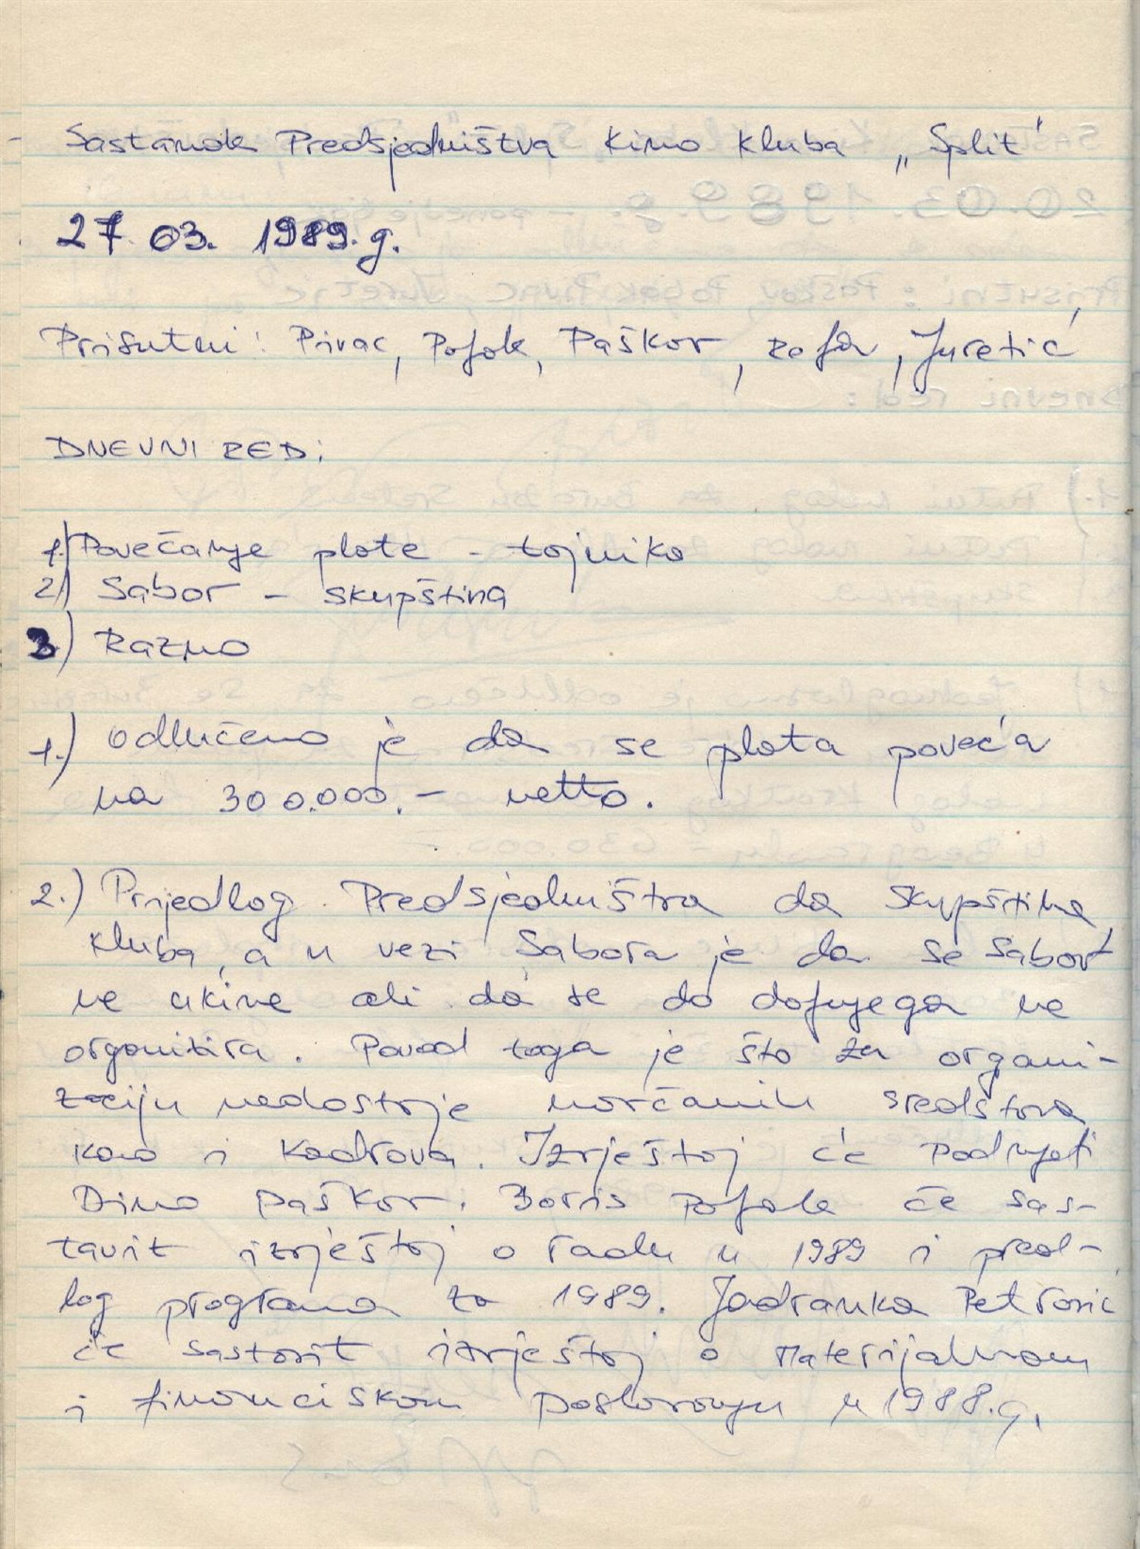 Sastanak Predsjedništva Kino Kluba „Split"
27. 03. 1989. g.
Prisutni: Pivac, Poljak, Paškov, , Juretić
DNEVNI RED:
1.) Povečanje plate - tajnika
2) Sabor - skupština
3.) Razno
1.) Odlučeno je da se plata poveća
na 300.000.- netto.
2.) Prijedlog Predsjedništva da skupština
Kluba, a u vezi Sabora je da se Sabor
ne ukine ali da se do daljnjega ne
organizira. Povod toga je što za organi-
zaciju nedostaje novčanih sredstava
kao i kadrova. Izvještaj će podnijeti
Dino Paškov. Boris Poljak će sas-
tavit izvještaj o radu u 1989 i pred-
log programa za 1989. Jadranka Petrović
će sastavit izvještaj o materijalnom
i financiskom poslovanju u 1988. g.